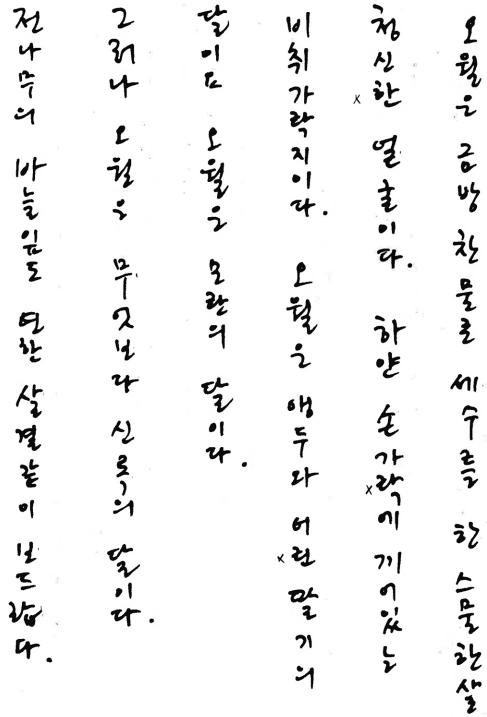 오월은 금방 찬물로 세수를 한 스물한살
청신한 얼굴이다. 하얀 손가락에 끼어있는
비취가락지이다. 오월은 앵두와 어린 딸기의
달이요 오월은 모란의 달이다.
그러나 오월은 무엇보다 신록의 달이다.
전나무의 바늘잎도 연한 살결같이 보드랍다.